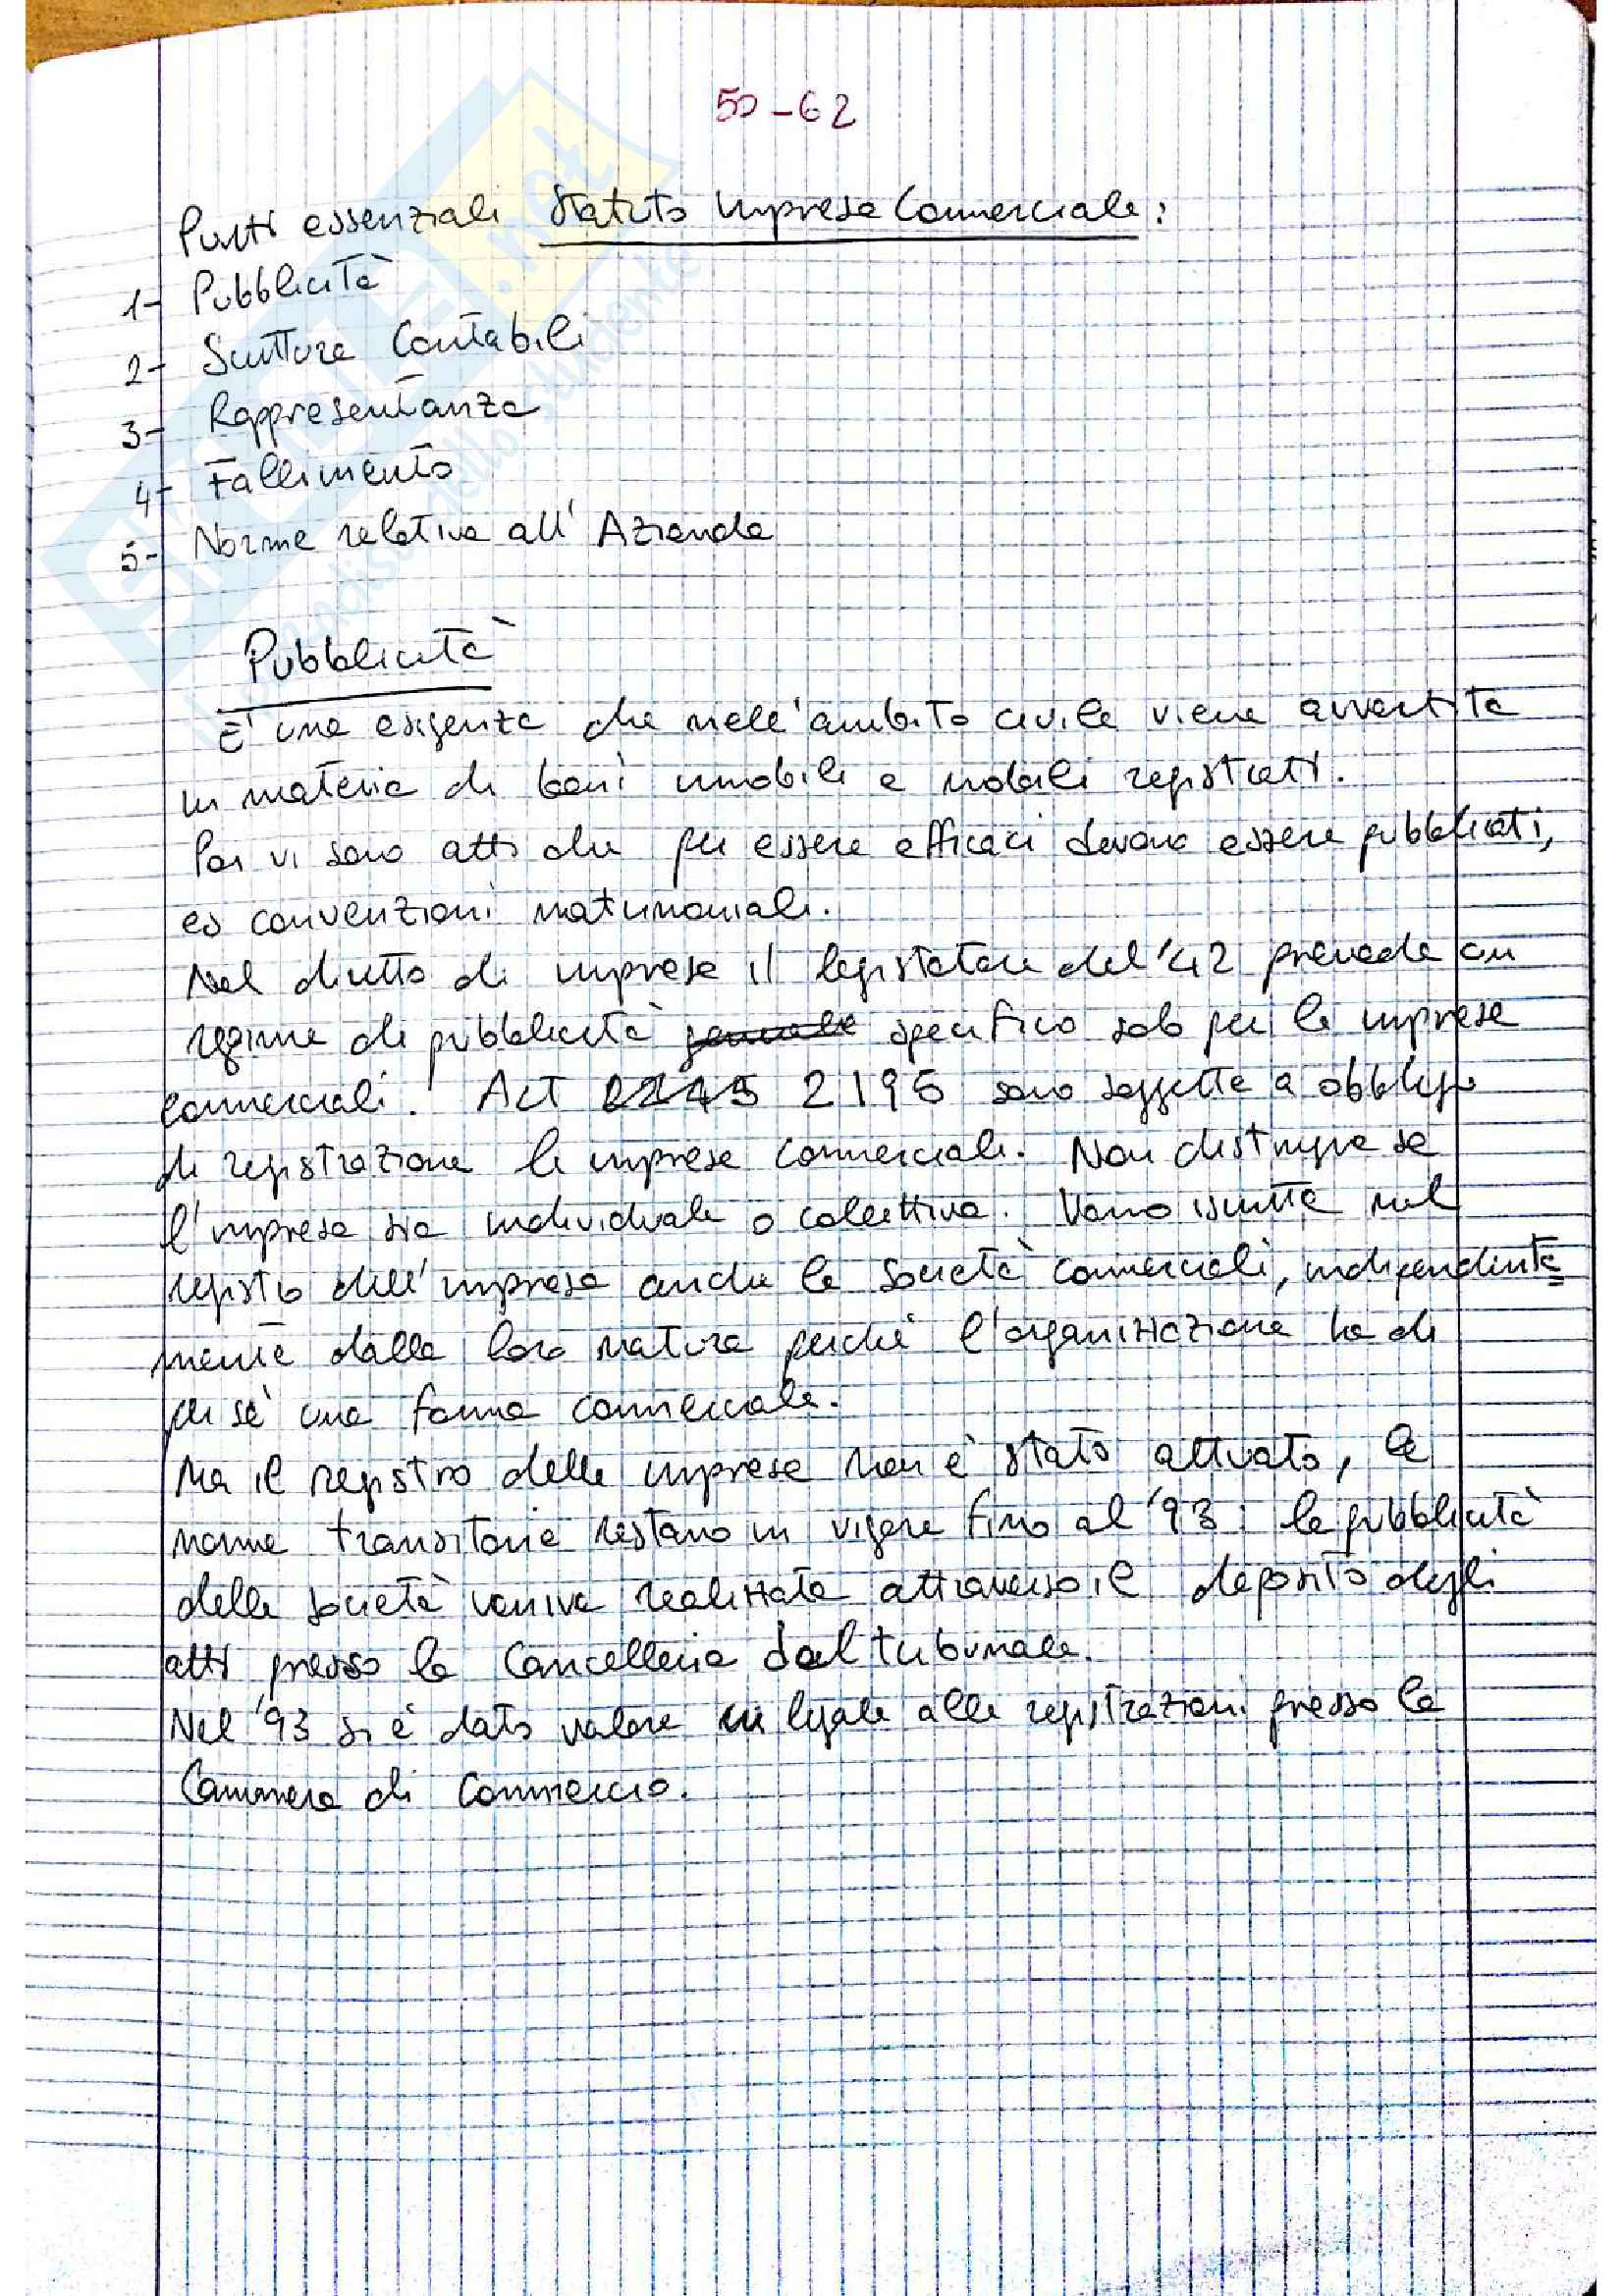 50-62
Punti essenziali Statuto Impresa Commerciale:
1- Pubblicità
2- Scritture Contabili
3- Rappresentanza
4- Fallimento
5- Norme relative all'Azienda
Pubblicità
E' una esigenza che nell'ambito civile viene avvertita
in materia di beni immobili e mobili registrati.
Poi vi sono atti che per essere efficaci devono essere pubblicati,
es convenzioni matrimoniali.
Nel diritto di impresa il legislatore del '42 prevede un
regime di pubblicità specifico solo per le imprese
commerciali. Art 2195 sono soggette a obbligo
di registrazione le imprese commerciali. Non distingue se
l'impresa sia individuale o collettiva. Vanno iscritte nel
registro dell'impresa anche le società commerciali, indipendente=
mente dalla loro natura perché l'organizzazione ha di
per sè una forma commerciale.
Ma il registro delle imprese non è stato attivato, le
norme transitorie restano in vigore fino al '93: la pubblicità
delle società veniva realizzata attraverso il deposito degli
atti presso la Cancelleria del tribunale.
Nel '93 si è dato valore legale alle registrazioni presso la
Cammera di Commercio.
SKUOLA.net
il paradiso dello studente